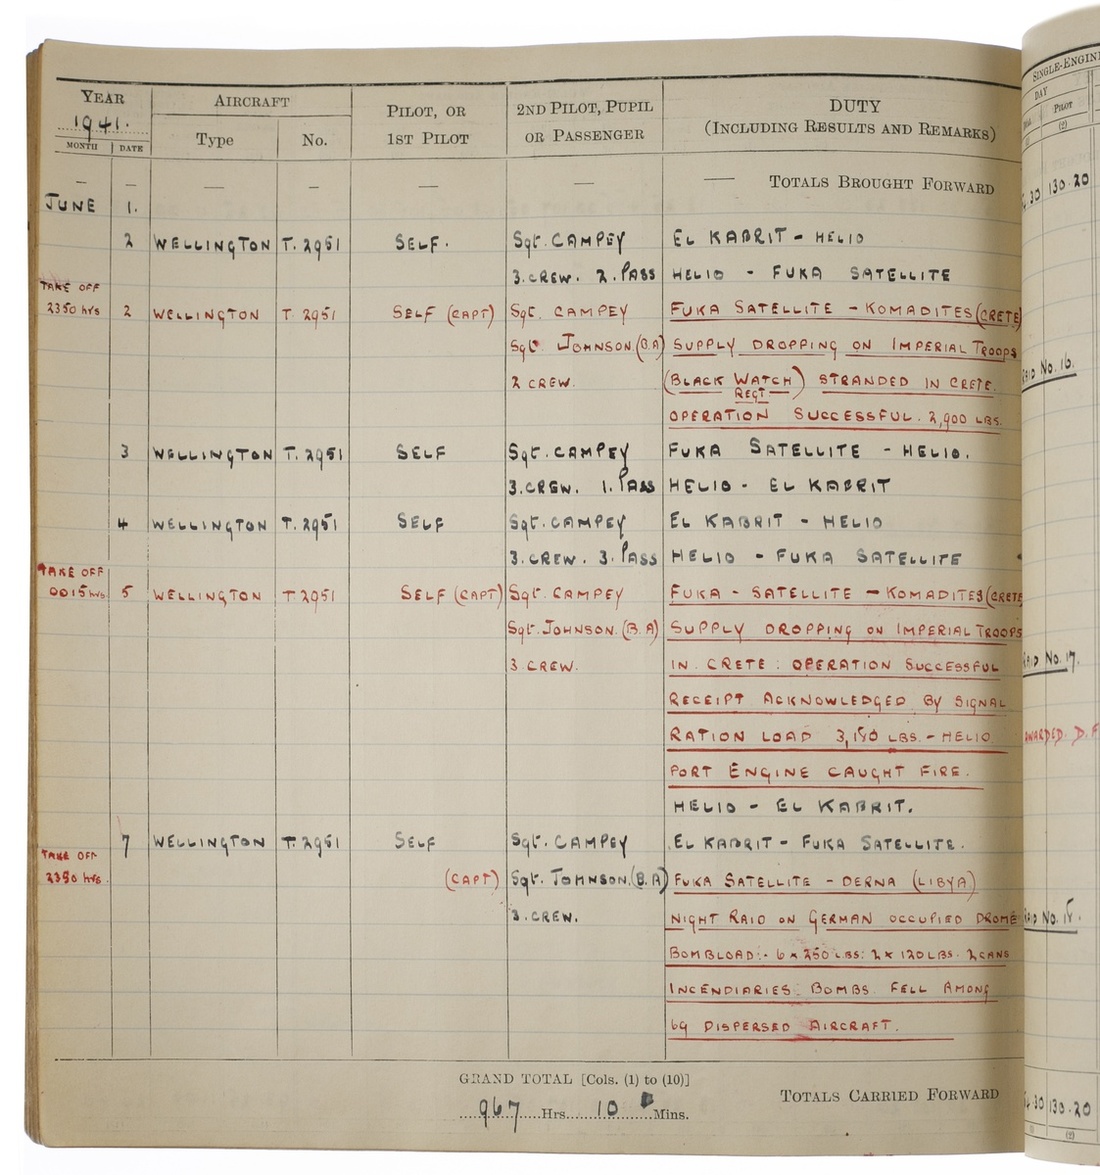 YEAR AIRCRAFT PILOT, OR 1ST PILOT 2ND PILOT, PUPIL OR PASSENGER DUTY (INCLUDING RESULTS AND REMARKS) SINGLE-ENGIN
1941. Type No. DAY
MONTH DATE PILOT
(2)
— — — — — — — —— TOTALS BROUGHT FORWARD 130.20
JUNE 1.
2 WELLINGTON T.2951 SELF. Sgt. CAMPEY EL KABRIT - HELIO
3.CREW. 2.PASS HELIO - FUKA SATELLITE
TAKE OFF
2350 hrs 2 WELLINGTON T.2951 SELF (CAPT) Sgt. CAMPEY FUKA SATELLITE - KOMADITES (CRETE)
Sgt. JOHNSON.(B.A) SUPPLY DROPPING ON IMPERIAL TROOPS
2 CREW. (BLACK WATCH REGT) STRANDED IN CRETE. RAID No. 16.
OPERATION SUCCESSFUL. 2,900 LBS.
3 WELLINGTON T.2951 SELF Sgt. CAMPEY FUKA SATELLITE - HELIO.
3.CREW. 1.PASS HELIO - EL KABRIT
4 WELLINGTON T.2951 SELF Sgt. CAMPEY EL KABRIT - HELIO
3.CREW. 3.PASS HELIO - FUKA SATELLITE
TAKE OFF
0015 hrs 5 WELLINGTON T 2951 SELF (CAPT) Sgt. CAMPEY FUKA - SATELLITE - KOMADITES (CRETE
Sgt. JOHNSON.(B.A) SUPPLY DROPPING ON IMPERIAL TROOPS
3 CREW. IN CRETE: OPERATION SUCCESSFUL RAID No. 17.
RECEIPT ACKNOWLEDGED BY SIGNAL
RATION LOAD 3,180 LBS. - HELIO AWARDED. D.F
PORT ENGINE CAUGHT FIRE.
HELIO - EL KABRIT.
7 WELLINGTON T.2951 SELF Sgt. CAMPEY EL KABRIT - FUKA SATELLITE.
TAKE OFF
2350 hrs. (CAPT) Sgt. JOHNSON.(B.A) FUKA SATELLITE - DERNA (LIBYA)
3.CREW. NIGHT RAID ON GERMAN OCCUPIED DROME RAID No. 18.
BOMBLOAD:- 6 x 250 LBS: 2 x 120 LBS. 2 CANS
INCENDIARIES: BOMBS FELL AMONG
69 DISPERSED AIRCRAFT.
GRAND TOTAL [Cols. (1) to (10)] TOTALS CARRIED FORWARD 130.20
967 Hrs. 10 Mins.
(2)